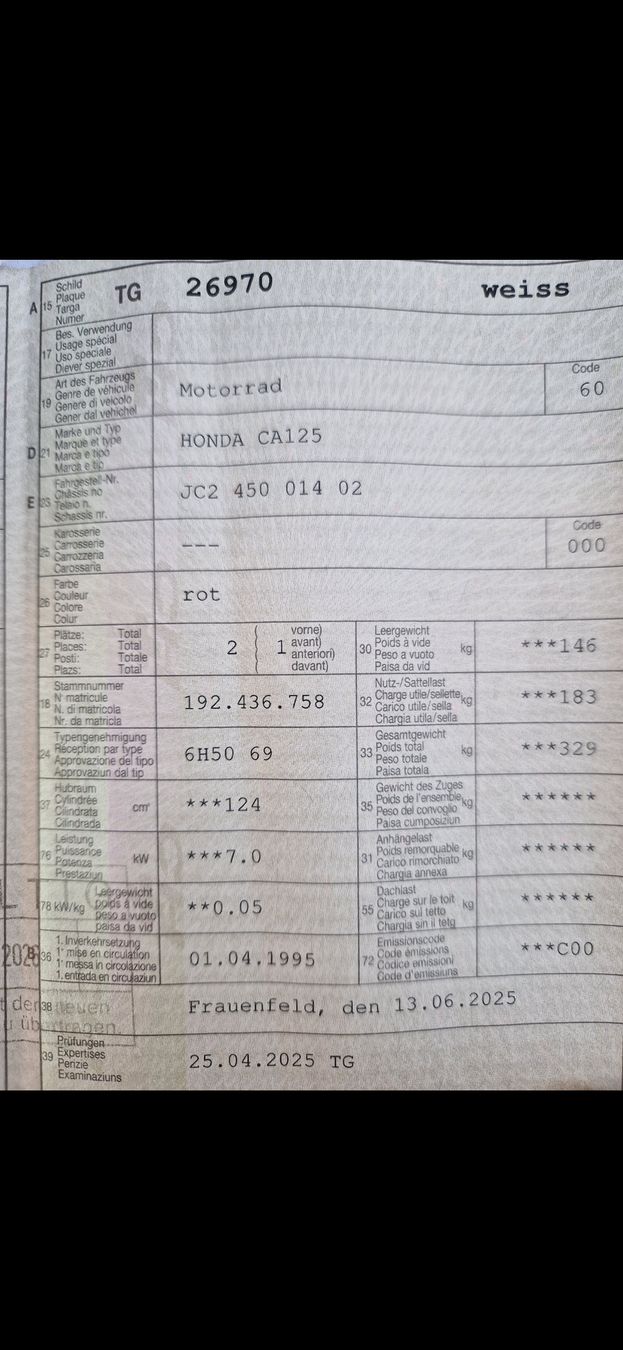 A 15 Schild Plaque Targa Numer TG 26970 weiss
17 Bes. Verwendung
Usage spécial
Uso speciale
Diever spezial
19 Art des Fahrzeugs
Genre de véhicule
Genere di veicolo
Gener dal vehichel
Motorrad
Code
60
D 21 Marke und Typ
Marque et type
Marca e tipo
Marca e tip
HONDA CA125
E 23 Fahrgestell-Nr.
Châssis no
Telaio n.
Schassis nr.
JC2 450 014 02
25 Karosserie
Carrosserie
Carrozzeria
Carossaria
---
Code
000
26 Farbe
Couleur
Colore
Colur
rot
27 Plätze: Total
Places: Total
Posti: Totale
Plazs: Total
2 ( 1 vorne)
avant)
anteriori)
davant)
30 Leergewicht
Poids à vide
Peso a vuoto
Paisa da vid
kg
***146
18 Stammnummer
N matricule
N. di matricola
Nr. da matricla
192.436.758
32 Nutz-/Sattellast
Charge utile/sellette
Carico utile/sella
Chargia utila/sella
kg
***183
24 Typengenehmigung
Réception par type
Approvazione del tipo
Approvaziun dal tip
6H50 69
33 Gesamtgewicht
Poids total
Peso totale
Paisa totala
kg
***329
37 Hubraum
Cylindrée
Cilindrata
Cilindrada
cm³
***124
35 Gewicht des Zuges
Poids de l'ensemble
Peso del convoglio
Paisa cumposiziun
kg
******
76 Leistung
Puissance
Potenza
Prestaziun
kW
***7.0
31 Anhängelast
Poids remorquable
Carico rimorchiato
Chargia annexa
kg
******
78 kW/kg Leergewicht
poids à vide
peso a vuoto
paisa da vid
**0.05
55 Dachlast
Charge sur le toit
Carico sul tetto
Chargia sin il tetg
kg
******
B 36 1. Inverkehrsetzung
1ʳ mise en circulation
1ª messa in circolazione
1. entrada en circulaziun
01.04.1995
72 Emissionscode
Code émissions
Codice emissioni
Code d'emissiuns
***C00
38 Frauenfeld, den 13.06.2025
neuen
übertragen.
39 Prüfungen
Expertises
Perizie
Examinaziuns
25.04.2025 TG